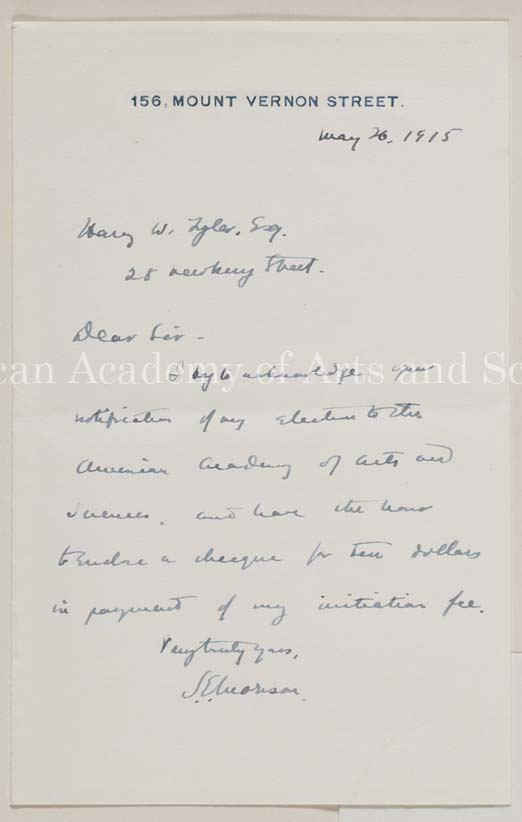 156, MOUNT VERNON STREET.
May 26, 1915
Harry W. Tyler, Esq.
28 Newbury Street.
Dear Sir -
I beg to acknowledge your
can Academy of Arts and Sc
notification of my election to the
American Academy of Arts and
Sciences, and have the honor
to enclose a cheque for ten dollars
in payment of my initiation fee.
Very truly yours,
S.E. Morison.